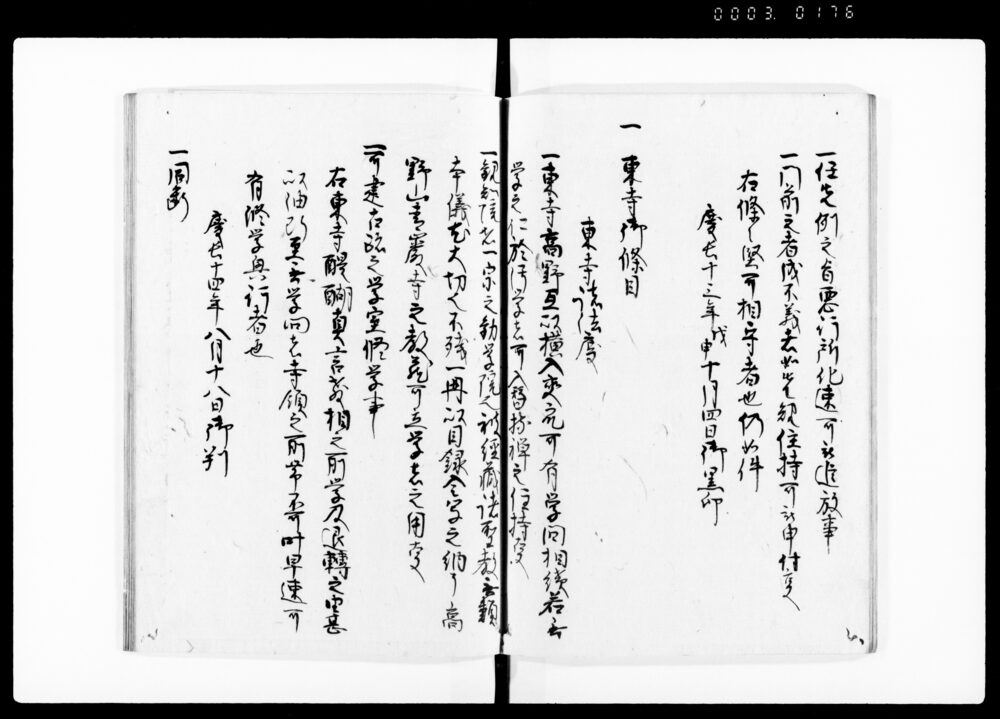 0003. 0176
一任先例之旨悪行所化速可被追放事
一門前之者成不義者如先規住持可被申付事
右條々堅可相守者也仍如件
慶長十三年戊申十月四日御黒印
一 東寺御條目
東寺諸法度
一東寺高野互以横入交衆可有学問相続若無
学之仁於浮学者可入替於禅之住持事
一観智院者一宗之勧学院也被経蔵諸聖教無類
本儀尤大切也不残一冊以目録合写之納于高
野山青巌寺之教蔵可立学者之用事
一可建古跡之学室修学事
右東寺醍醐真言教相之所学及退轉之由甚
以油断至無学問者寺領之所帯不可叶早速可
有修学興行者也
慶長十四年八月十八日御判
一同断